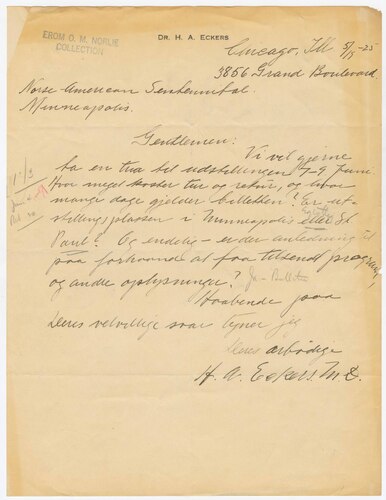 FROM O. M. NORLIE
COLLECTION
DR. H. A. ECKERS
Chicago, Ill 5/8-25
3856 Grand Boulevard
Norse-American Centennial.
Minneapolis.
Gentlemen:
Vi vil gjerne
ta en tur til udstillingen 7-9 juni
Hvor meget koster tur og retur, og hvor
mange dage gjelder billetten? Er ut-
stillingspladsen i Minneapolis eller St.
Paul? Og endelig - er der anledning til
paa forhaand at faa tilsendt program
og andre oplysninger?
Haabende paa
Deres velvillige svar tegner jeg
Deres ærbødige
H. A. Eckers M.D.